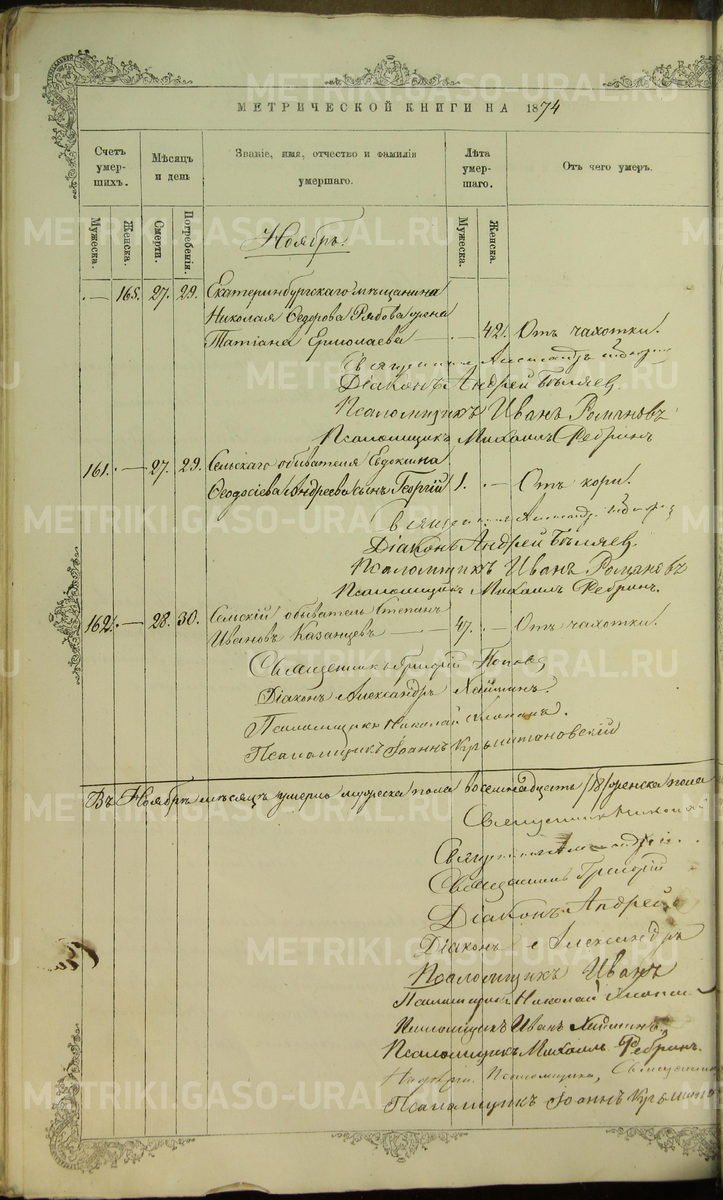 МЕТРИЧЕСКОЙ КНИГИ НА 1874
Счетъ умер- шихъ.
Мѣсяцъ и день
Званіе, имя, отчество и фамилія умершаго.
Лѣта умер- шаго.
Отъ чего умеръ.
Мужеска.
Женска.
Смерти.
Погребенія.
Мужеска.
Женска.
Ноябрь.
— 165. 27. 29. Екатеринбургскаго мѣщанина
Николая Ѳедорова Рябова жена
Татіана Ермолаева — 42. Отъ чахотки.
Священникъ Александръ
Діаконъ Андрей Бѣляев.
Псаломщикъ Иванъ Романовъ
Псаломщикъ Михаилъ Ребринъ
161. — 27. 29. Сельскаго обывателя Евдокима
Ѳеодосіева Андреева сынъ Георгій 1. — Отъ кори.
Священникъ Александръ
Діаконъ Андрей Бѣляев.
Псаломщикъ Иванъ Романовъ
Псаломщикъ Михаилъ Ребринъ.
162. — 28. 30. Сельскій обыватель Степанъ
Ивановъ Казанцевъ — 47. Отъ чахотки.
Священникъ Григорій Поповъ
Діаконъ Александръ
Псаломщикъ Николай
Псаломщикъ Іоаннъ
Въ Ноябрѣ мѣсяцѣ умерло мужеска пола восемнадцать /18/ женска пола
Священникъ Николай
Священникъ Александръ
Священникъ Григорій
Діаконъ Андрей
Діаконъ Александръ
Псаломщикъ Иванъ
Псаломщикъ Николай
Псаломщикъ Иванъ
Псаломщикъ Михаилъ Ребринъ.
Псаломщика, Священник
Псаломщикъ Іоаннъ
METRIKI.GASO-URAL.RU